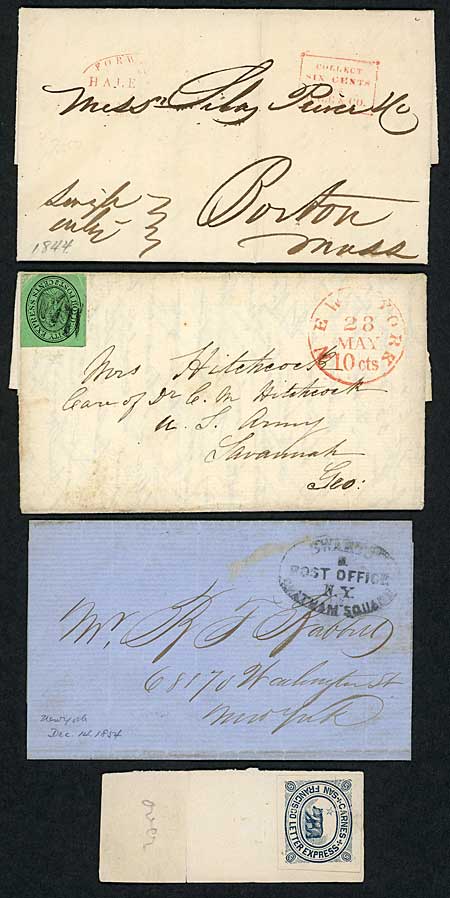 FORW
HALE
COLLECT
SIX CENTS
& CO.
Messrs Silas Peirce & Co
Boston
Mass
Single
only
1844
CITY EXPRESS POST
NEW YORK
28
MAY
10 cts
Mrs Hitchcock
Care of Dr C. M Hitchcock
U. S. Army
Savannah
Geo:
SWARTS
POST OFFICE
N.Y.
CHATHAM SQUARE
Mr. R F
Washington St
New York
New York
Dec. 14. 1854
over
CARNES
SAN FRANCISCO LETTER EXPRESS